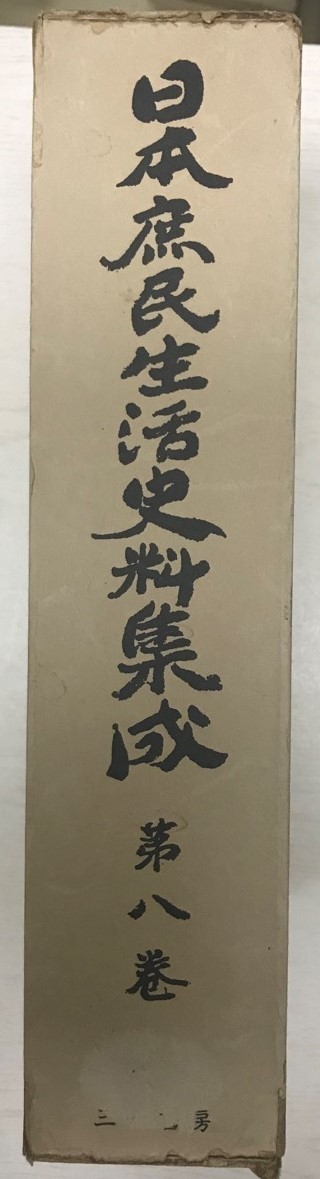 日本庶民生活史料集成
第八巻
三 房